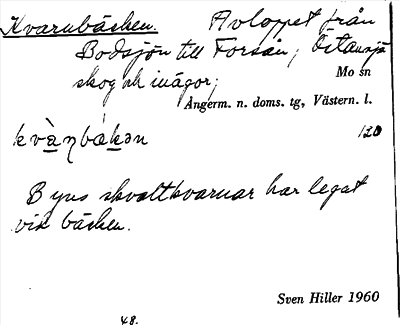 Kvarnbäcken. Avloppet från
Bodsjön till Forsån; Östansjö
skog och inägor;
Mo sn
Ångerm. n. doms. tg, Västern. l.
kvàɳbákən 120
Byns skvaltkvarnar har legat
vid bäcken.
Sven Hiller 1960
48.